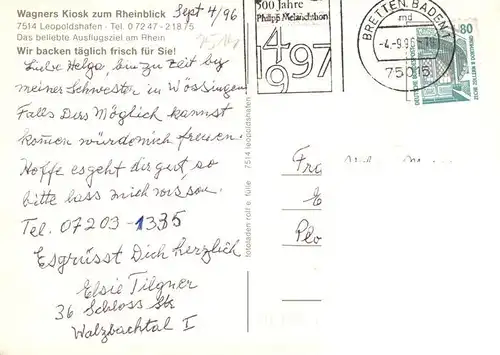 Wagners Kiosk zum Rheinblick
7514 Leopoldshafen · Tel. 0 72 47 - 2 18 75
Das beliebte Ausflugsziel am Rhein
Wir backen täglich frisch für Sie!
Sept 4/96
Liebe Helga, bin zu zeit bey
meiner Schwester in Wössingen
Falls Dirs Möglich kannst
komen würde mich freuen.
Hoffe es geht dir gut, so
bitte lass mich wissen.
Tel. 07203-1335
Es grüsst Dich herzlich
Elsie Tilgner
36 Schloss Str
Walzbachtal I
fotoladen rolf e. fülle · 7514 leopoldshafen
500 Jahre
Philipp Melanchthon
1497
BRETTEN, BADEN 1
md
-4.-9.96-
75015
80
DEUTSCHE BUNDESPOST
ZECHE ZOLLERN II DORTMUND